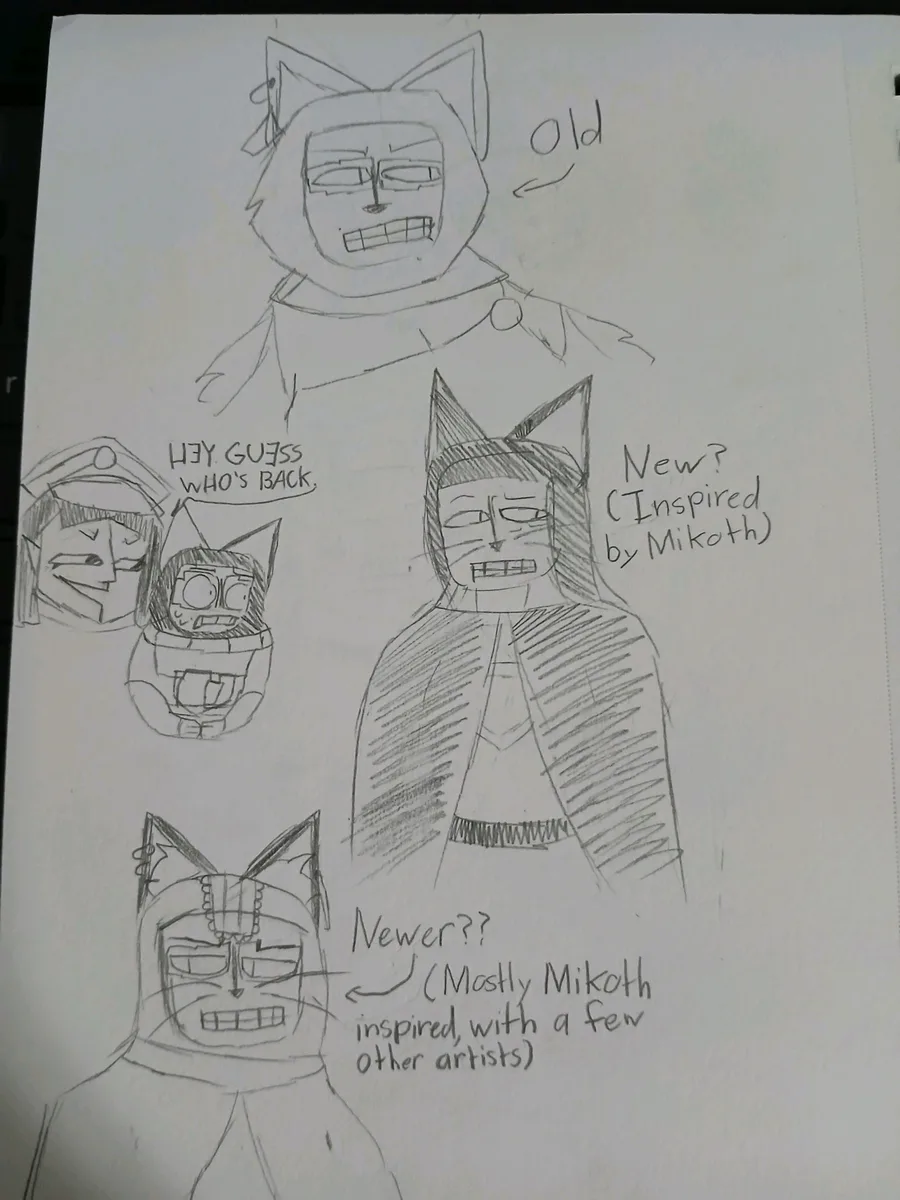 Old
HEY GUESS
WHO'S BACK.
New?
(Inspired
by Mikoth)
Newer??
(Mostly Mikoth
inspired, with a few
other artists)
r